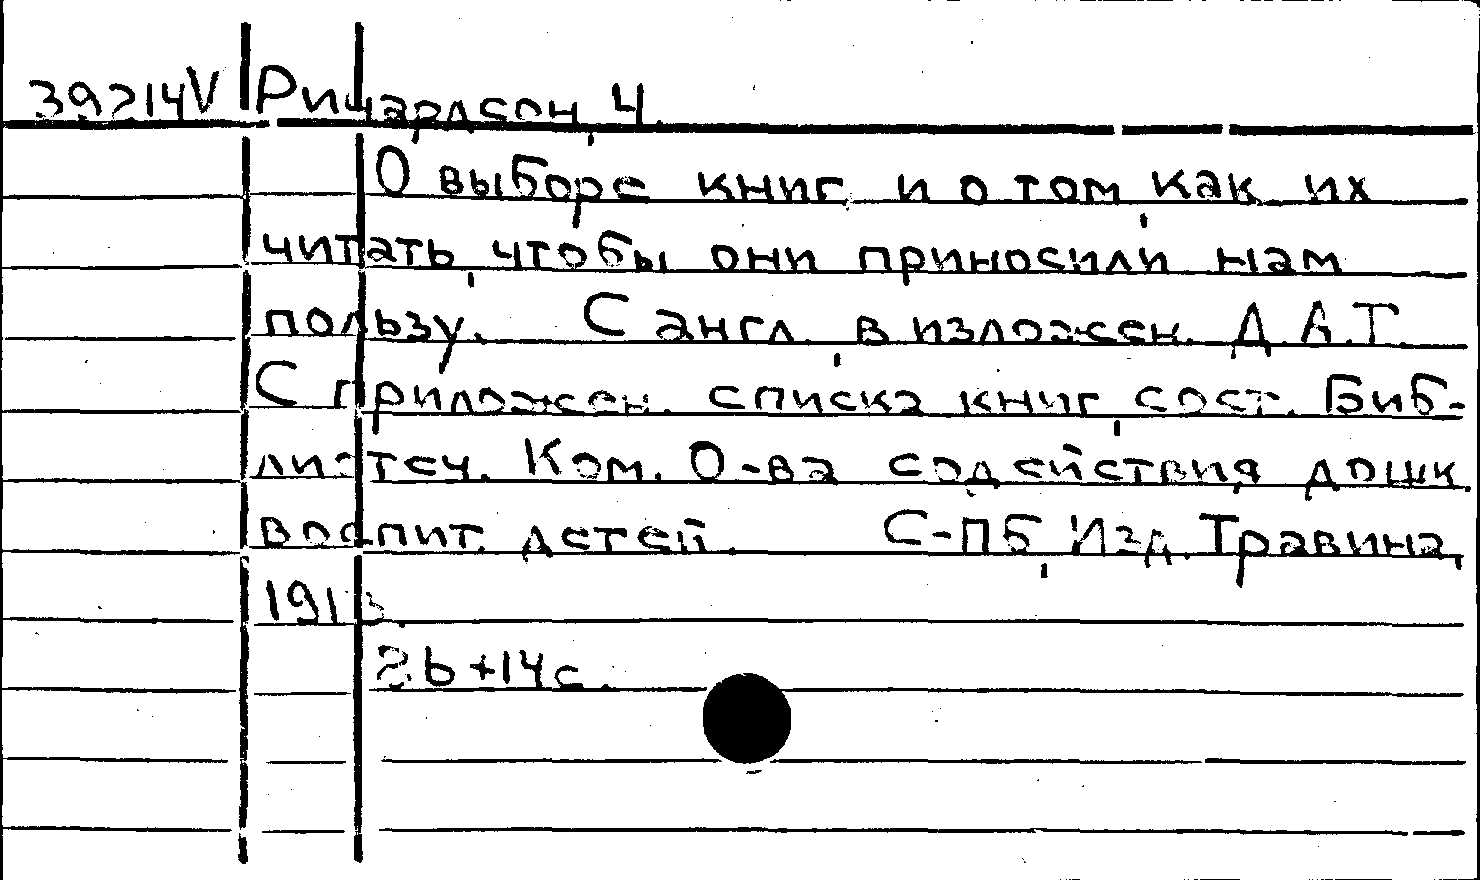 39214V Ричардсон, Ч.
О выборе книг и о том, как их
читать, чтобы они приносили нам
пользу. С англ., в изложен. Д.А.Т.
С приложен. списка книг, сост. Биб-
лиотеч. Ком. О-ва содействия дошк.
воспит. детей. С-ПБ, Изд. Травина,
1913.
86+14с.